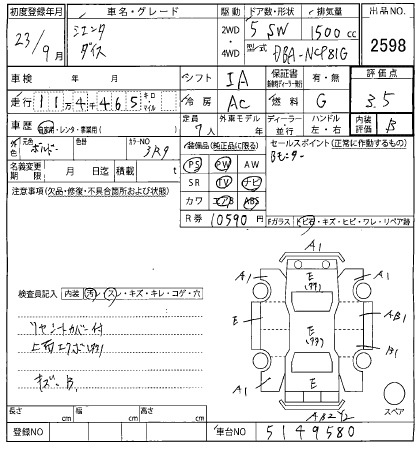 初度登録年月 車名・グレード 駆動 ドア数・形状 排気量 出品NO.
23/9月 シエンタ ダイス 2WD・4WD 5 SW 1500cc
型式 DBA-NCP81G 2598
車検 年 月 シフト IA 保証書 有・無 評価点
走行 11万4千465 キロ マイル 冷房 AC 燃料 G 3.5
車歴 自家用・レンタ・事業用( ) 定員 7人 外車モデル 年 ディーラー・並行 ハンドル 左・右 内装評価 B
外色 元色 ボルドー 色替 カラーNO 3R9
装備品(純正品に限る) セールスポイント(正常に作動するもの)
PS PW AW Bモニター
名義変更期限 月 日迄 積載 t
SR TV ナビ
注意事項(欠品・修復・不具合箇所および状態)
カワ エアB ABS
R券 10590円
Fガラス トビ石・キズ・ヒビ・ワレ・リペア跡
検査員記入 内装 汚・スレ・キズ・キレ・コゲ・穴
リヤシートカバー付
キズ B
A1
A1 E A1
E AB1
B1
A1 E A1
スペア
長さ cm 幅 cm 高さ cm
登録NO 車台NO 5149580